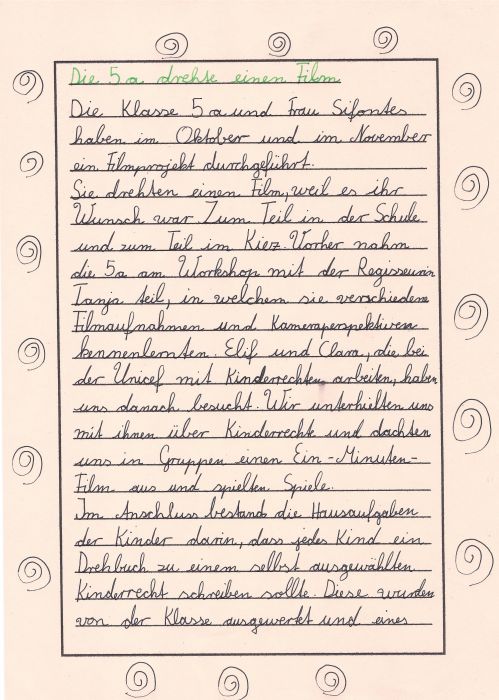 Die 5a drehte einen Film
Die Klasse 5a und Frau Sifontes
haben im Oktober und im November
ein Filmprojekt durchgeführt.
Sie drehten einen Film, weil es ihr
Wunsch war. Zum Teil in der Schule
und zum Teil im Kiez. Vorher nahm
die 5a am Workshop mit der Regisseurin
Tanja teil, in welchem sie verschiedene
Filmaufnahmen und Kameraperspektiven
kennenlernten. Elif und Clara, die bei
der Unicef mit Kinderrechten arbeiten, haben
uns danach besucht. Wir unterhielten uns
mit ihnen über Kinderrechte und dachten
uns in Gruppen einen Ein-Minuten-
Film aus und spielten Spiele.
Im Anschluss bestand die Hausaufgaben
der Kinder darin, dass jedes Kind ein
Drehbuch zu einem selbst ausgewählten
Kinderrecht schreiben sollte. Diese wurden
von der Klasse ausgewertet und eines